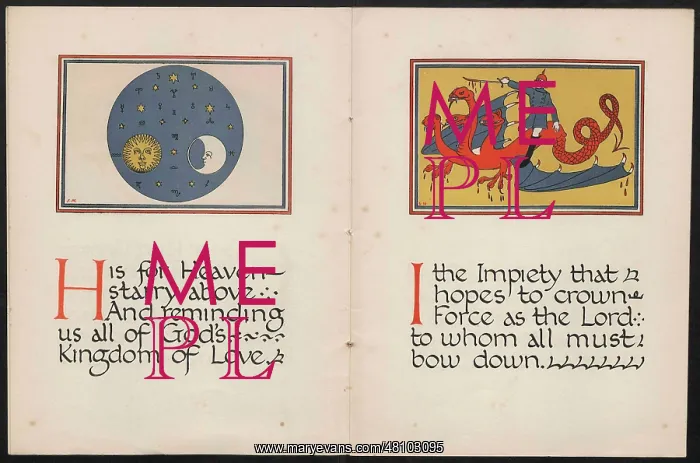 His for Heaven
starry above
And reminding
us all of God's
Kingdom of Love.
I the Impiety that
hopes to crown
Force as the Lord
to whom all must
bow down.
ME
PL
ME
PL
www.maryevans.com/48103095